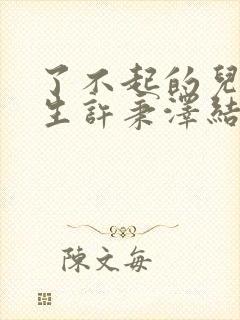 了不起的兒
生許秉澤結
陳文每